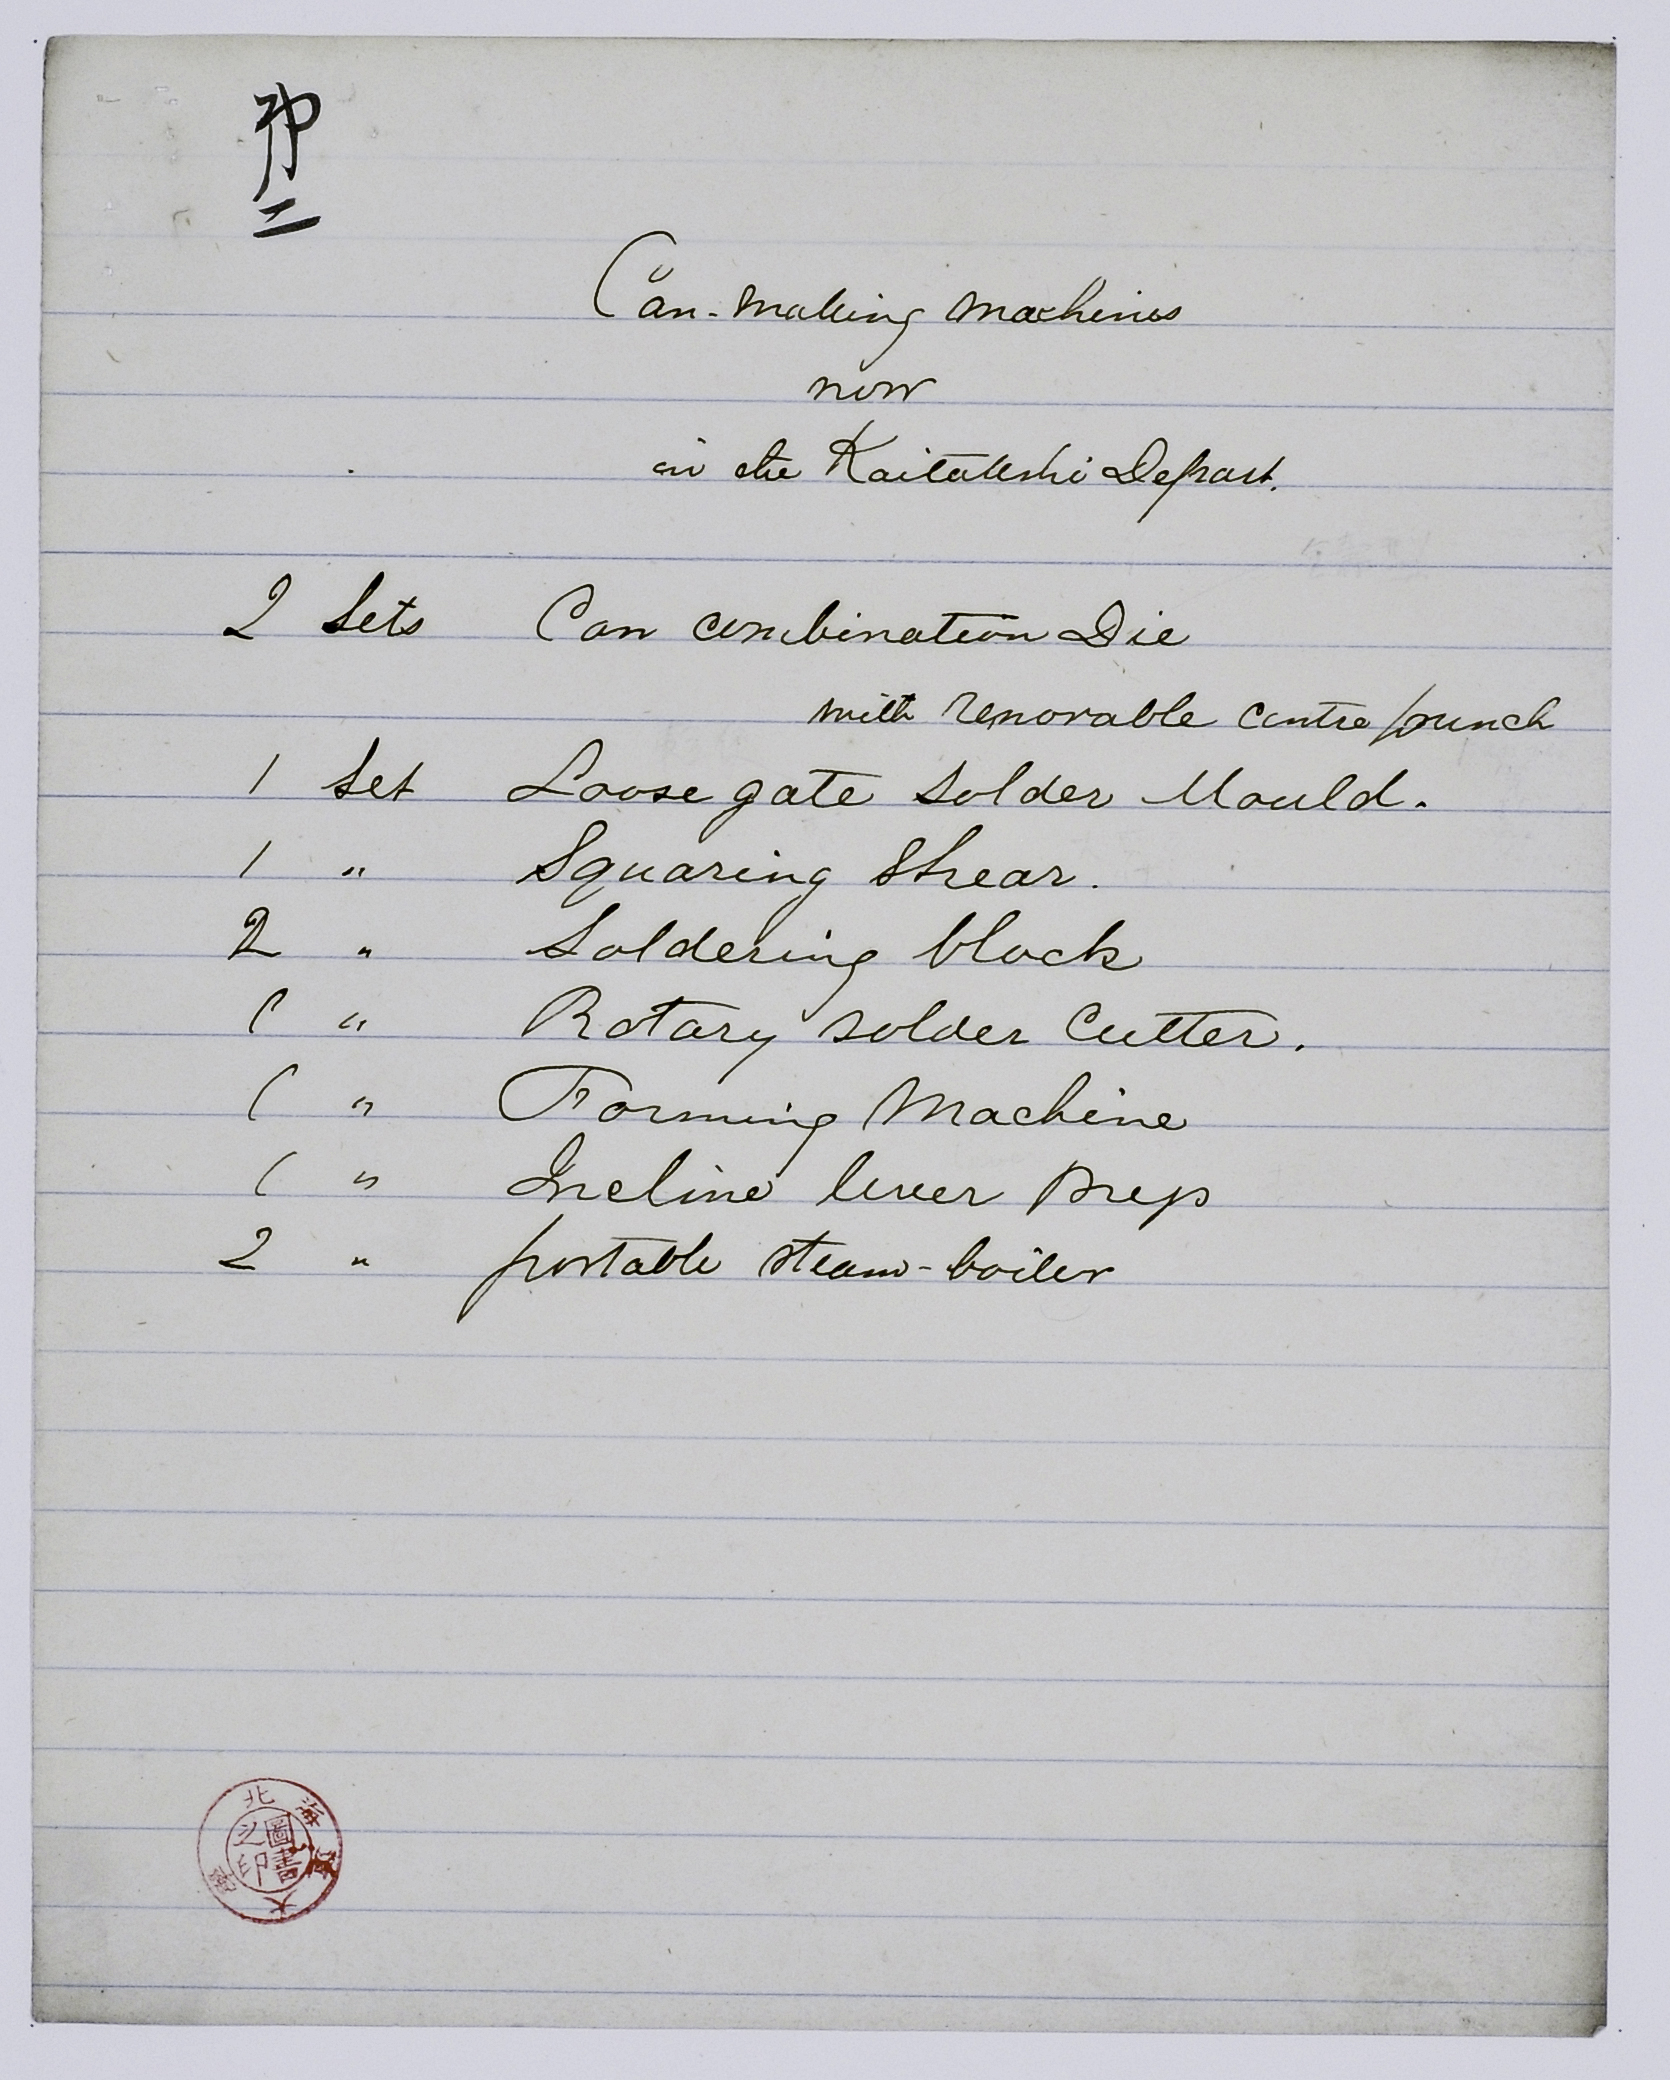 印
二
Can-making machines
now
in the Kaitakushi Depart.
2 Sets Can combination Die
with removable centre punch
1 Set Loose gate solder Mould.
1 " Squaring Shear.
2 " Soldering block
1 " Rotary solder Cutter.
1 " Forming Machine
1 " Incline lever Press
2 " portable steam-boiler
北海道大學
圖書
之印